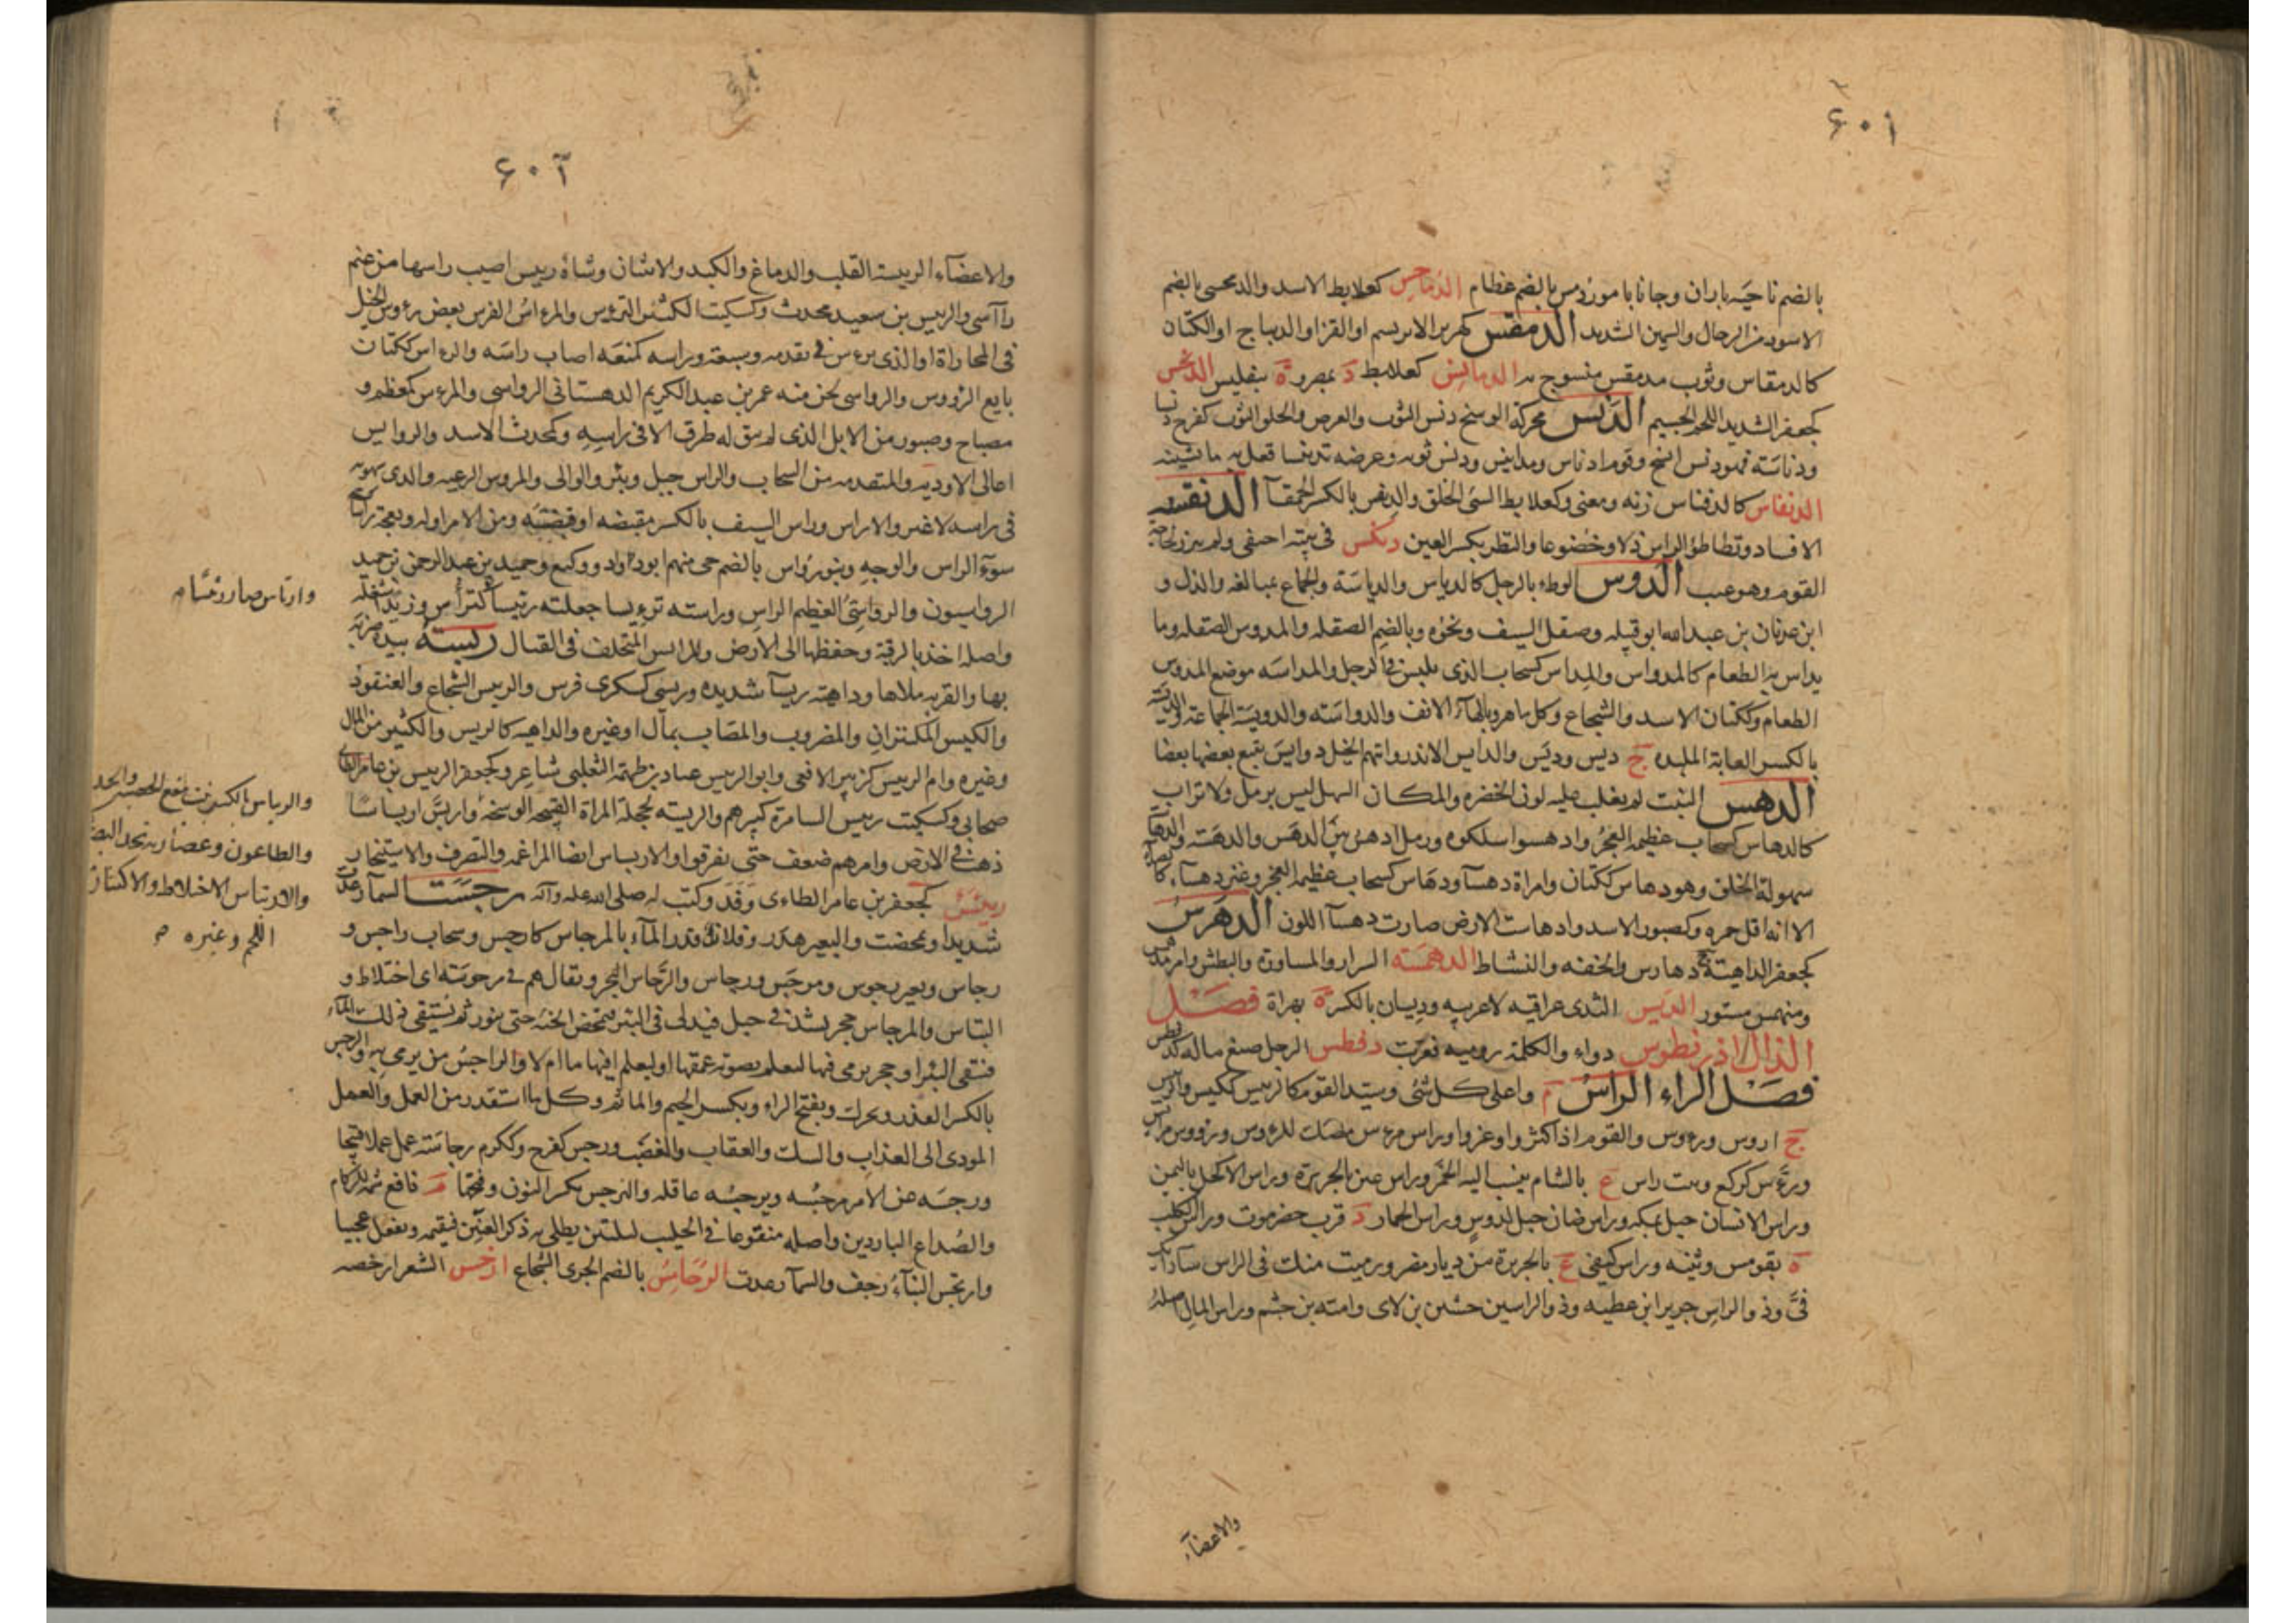 ٦٠١
بالضم ناحية باران وجانابا مور دمس بالضم عظام الدماحس كعلابط الاسد والدمحسى بالضم
الاسود من الرجال والسمين الشديد الدمقس كهزبر الابريسم او القز او الديباج او الكتان
كالدمقاس وثوب مدمقس منسوج به الدمانس كعلابط د بمصر وة بتفليس الدنخس
كجعفر الشديد اللحم الجسيم الدنس محركة الوسخ دنس الثوب والعرض والخلق الثوب كفرح دنسا
ودناسة فهو دنس اتسخ وقوم ادناس ومدانيس ودنس ثوبه وعرضه تدنيسا فعل به ما يشينه
الدنفاس كالدفناس زنه ومعنى وكعلابط السئ الخلق والدنفس بالكسر الحمقآ الدنقسة
الافساد وتطاطؤ الراس ذلا وخضوعا والنظر بكسر العين دنكس فى بيته اختفى ولم يبرز لحاجة
القوم وهو عيب الدوس الوطء بالرجل كالدياس والدياسة والجماع بمبالغه والذل و
ابن عدنان بن عبد الله ابو قبيله وصقل السيف ونحوه وبالضم الصقله والمدوس المصقله وما
يداس به الطعام كالمدواس والمداس كسحاب الذى يلبس فى الرجل والمداسه موضع المدوس
الطعام وككتان الاسد والشجاع وكل ماهر وبالهآء الانف والدواسة والدويسة الجماعة والديسة
بالكسر الغابة الملبده ج ديس وديس والدايس الاندر واتتهم الخيل دوايس يتبع بعضها بعضا
الدهس النبت لم يغلب عليه لون الخضره والمكان السهل ليس برمل ولا تراب
كالدهاس كسحاب عظيمة العجز وادهسوا سلكوه ورمل ادهس بين الدهس والدهسة والدهآسة
سهولة الخلق وهو دهاس ككتان وامراة دهسآ ودهاس كسحاب عظيمه العجز وعنز دهسآء كالصدآ
الا انه اقل حمره وكصبور الاسد وادهاست الارض صارت دهسآ اللون الدهرس
كجعفر الداهية ج دهارس والخفه والنشاط الدهمسة السرار والمساورة والبطش وامر مدهمس
ومنهمس مستور الديس الثدى عراقيه لا عربيه وديسان بالكسر ة بهراة فصل
الذال اذريطوس دواء والكلمة روميه فعربت دفطس الرجل ضيع ماله كدفطس
فصل الراء الراس م واعلى كل شئ وسيد القوم كالريس ككيس والرييس
ج ارؤس ورءوس والقوم اذا كثروا وعزوا وراس مرءس مصك للرءوس ورووس مراس
ورءس كركع وبيت راس ع بالشام ينسب اليه الخمر وراس عين بالجزيرة وراس الاكحل باليمن
وراس الانسان جبل بمكه وراس ضان جبل لدوس وراس الحمار د قرب حضرموت وراس الكلب
ة بقومس وثنيه وراس كيفى ع بالجزيرة من ديار مضر ورميت منك فى الراس سآ رايك
فىَّ وذو الراس جرير ابن عطيه وذو الراسين خشين بن لاى وامية بن جشم وراس المال اصله
والاعضآء
٦٠٢
والاعضآء الرييسة القلب والدماغ والكبد والانثيان وشاة رييس اصيب راسها من غنم
رآآسى والرييس بن سعيد محدث وكسكيت الكثير الترؤس والمرءاس الفرس يعض رءوس الخيل
فى المجاراة او الذى يرءس فى تقدمه وسبقه وراسه كمنعه اصاب راسه والرءاس ككتان
بايع الرؤوس والرواسى لحن منه عمر بن عبد الكريم الدهستانى الرواسى والمرءس كمعظم و
مصباح وصبور من الابل الذى لم يبق له طرق الا فى راسه وكمحدث الاسد والروايس
اعالى الاوديه والمتقدمه من السحاب والراس جبل وبئر والوالى والمرؤس الرعيه والذى شهوته
فى راسه لا غير والاراس وراس السيف بالكسر مقبضه او قبيعته ومن الامر اوله ونعجة راساء
سودآء الراس والوجه وبنو رؤاس بالضم حى منهم ابو دؤاد ووكيع وحميد بن عبد الرحمن بن حميد
الرواسيون والرؤاسى العظيم الراس وراسته ترءيسا جعلته رئيسا كترأس وزيدا شغله
واصله اخذ بالرقبة وحفضها الى الارض والمرايس المتخلف فى القتال ربسه بيده ضربه
بها والقربه ملاها وداهية ربسآ شديده وربسى كسكرى فرس والربيس الشجاع والعنقود
والكيس المكتنزان والمضروب والمصاب بمال او غيره والداهيه كالربس والكثير من المال
وغيره وام الربيس كزبير الافعى وابو الربيس عباد بن طهمة الثعلبى شاعر وكجعفر الربيس بن عامر الطائى
صحابى وكسكيت ربيس السامرة كبيرهم والربسة كخجلة المراة القبيحه الوسخه واربسَّ اربساسا
ذهب فى الارض وامرهم ضعف حتى تفرقوا والاربساس ايضا المراغمه والتصرف والاستيخار
ريتس كجعفر بن عامر الطاءى وفد وكتب له صلى الله عليه وآله رجست السمآ رعدت
شديدا وتمخضت والبعير هدر وفلان قدر المآء بالمرجاس كارجس وسحاب راجس و
رجاس وبعير رجوس ومرجس ورجاس والرجاس البحر ويقال هم فى مرجوسة اى اختلاط و
التباس والمرجاس حجر يشد فى حبل فيدلى فى البئر فتمخض الحمة حتى تثور ثم يستقى ذلك المآء
فتنقى البئر او حجر يرمى فيها ليعلم بصوته عمقها او ليعلم افيها ما ام لا والراجس من يرمى به والرجس
بالكسر القذر ويحرك وبفتح الراء وبكسر الجيم والماثم وكل ما استقذر من العمل والعمل
المودى الى العذاب والشك والعقاب والغضب ورجس كفرح وككرم رجاسة عمل عملا قبيحا
ورجسه عن الامر يرجسه ويرجسه عاقه والنرجس بكسر النون وفتحها م نافع شمه للزكام
والصداع الباردين واصله منقوعا فى الحليب ليلتين يطلى به ذكر العنين فيقيمه ويفعل عجيبا
وارتجس البنآء رجف والسمآ رعدت الرحامس بالضم الجرى الشجاع ارخس الشعر ارخصه
وارتاس صار رئيسا م
والريباس بالكسر نبت ينفع الحصبة والجدرى
والطاعون وعصارته تحد البصر
والارتباس الاختلاط والاكتناز
اللحم وغيره م